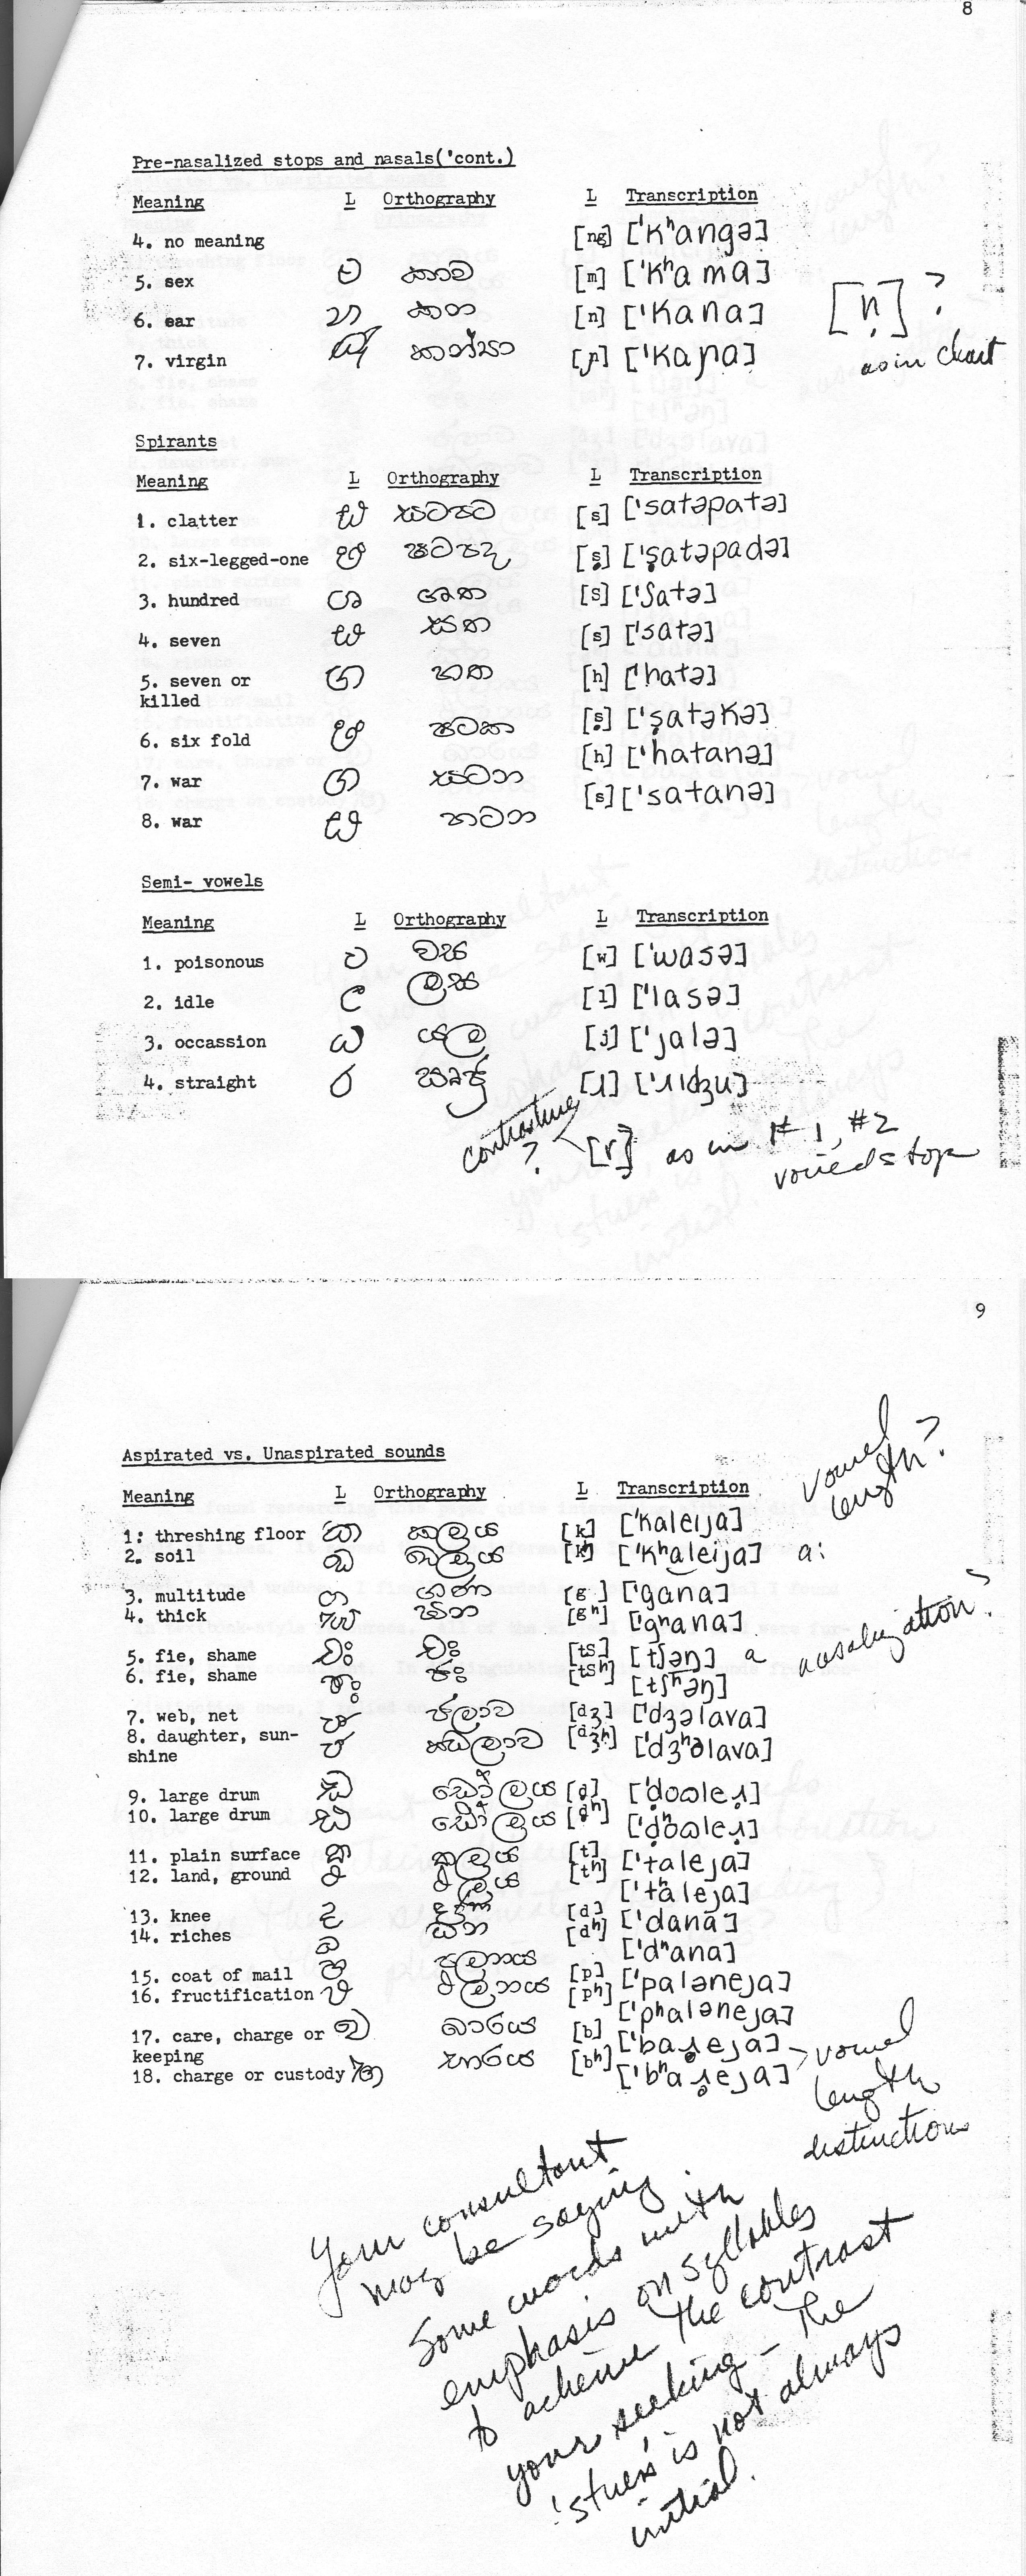 8
Pre-nasalized stops and nasals('cont.)
Meaning L Orthography L Transcription
4. no meaning [ng] ['kʰangə]
5. sex ම කාම [m] ['kʰama]
6. ear න කන [n] ['kana]
7. virgin [ɲ] ['kaɲa]
[ṇ] ?
as in chart
Spirants
Meaning L Orthography L Transcription
1. clatter ස සටපට [s] ['satəpatə]
2. six-legged-one ෂ ෂටපද [ṣ] ['ṣatəpadə]
3. hundred ශ ශත [s] ['ʃatə]
4. seven ස සත [s] ['satə]
5. seven or හ හත [h] ['hatə]
killed
6. six fold ෂ ෂටක [ṣ] ['ṣatəkə]
7. war හ සටන [h] ['hatanə]
8. war ස හටන [s] ['satanə]
Semi- vowels
Meaning L Orthography L Transcription
1. poisonous ව වස [w] ['wasə]
2. idle ල ලස [l] ['lasə]
3. occassion ය යල [j] ['jalə]
4. straight ර සෘජු [ɹ] ['ɹɪʤu]
contrastive
? [r] as in #1, #2
voiced stop
9
Aspirated vs. Unaspirated sounds
vowel
length?
Meaning L Orthography L Transcription
1: threshing floor ක කලය [k] ['kaleija]
2. soil ඛ ඛලය [kʰ] ['kʰaleija] a:
3. multitude ග ගණ [g] ['gana]
4. thick ඝ ඝන [gʰ] ['gʰana]
nasalization?
5. fie, shame චඃ චඃ [ts] [tʃəŋ] a
6. fie, shame ඡඃ ඡඃ [tsʰ] [tʃʰəŋ]
7. web, net ජ ජලාව [dʒ] ['dʒəlava]
8. daughter, sun- ඣලාව [dʒʰ] ['dʒʰəlava]
shine
9. large drum ඩ ඩෝලය [ḍ]
10. large drum ඪ ඪෝලය [ḍʰ]
11. plain surface ත තලය [t] ['taleja]
12. land, ground ථ ථලය [tʰ] ['tʰaleja]
13. knee ද දණ [d] ['dana]
14. riches ධ ධන [dʰ] ['dʰana]
15. coat of mail ප පලනය [p] ['paləneja]
16. fructification ඵ ඵලනය [pʰ] ['pʰaləneja]
17. care, charge or බ බාරය [b] ['baɹ̣eja]
keeping
18. charge or custody භ භාරය [bʰ] ['bʰaɹ̣eja]
vowel
length
distinctions
Your consultant
may be saying
some words with
emphasis on syllables
to achieve the contrast
your seeking - the
'stress' is not always
initial.